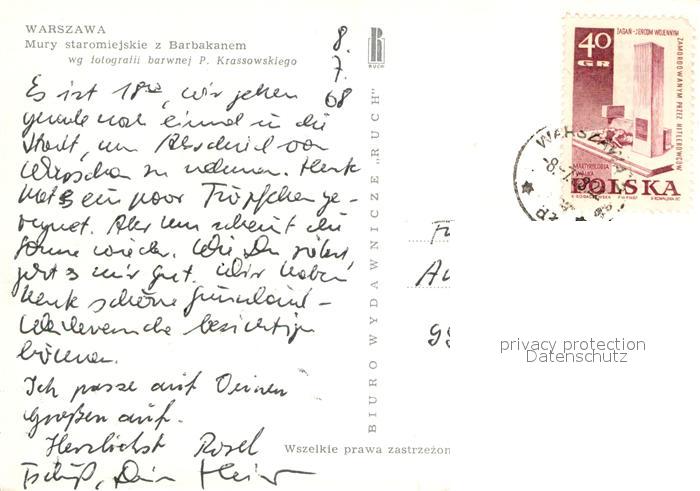 WARSZAWA
Mury staromiejskie z Barbakanem
wg fotografii barwnej P. Krassowskiego
8.
7.
68
RUCH
Es ist 18³⁰, wir gehen
gerade noch einmal in die
Stadt, um Abschied von
Warschau zu nehmen. Heute
hat's ein paar Tröpfchen ge-
regnet. Aber nun scheint die
Sonne wieder. Wie Du siehst,
geht's mir gut. Wir haben
heute schöne
besichtigen
können.
Ich passe auf Deinen
Großen auf.
Herzlichst Rosel
Tschüß, Dein
BIURO WYDAWNICZE „RUCH"
Wszelkie prawa zastrzeżon
40
GR
ŻAGAŃ-JEŃCOM WOJENNYM
ZAMORDOWANYM PRZEZ HITLEROWCÓW
MARTYROLOGIA
I WALKA
POLSKA
WARSZAWA
privacy protection
Datenschutz